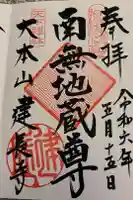 奉拝
令和六年
五月十五日
南無地蔵尊
大本山 建長寺